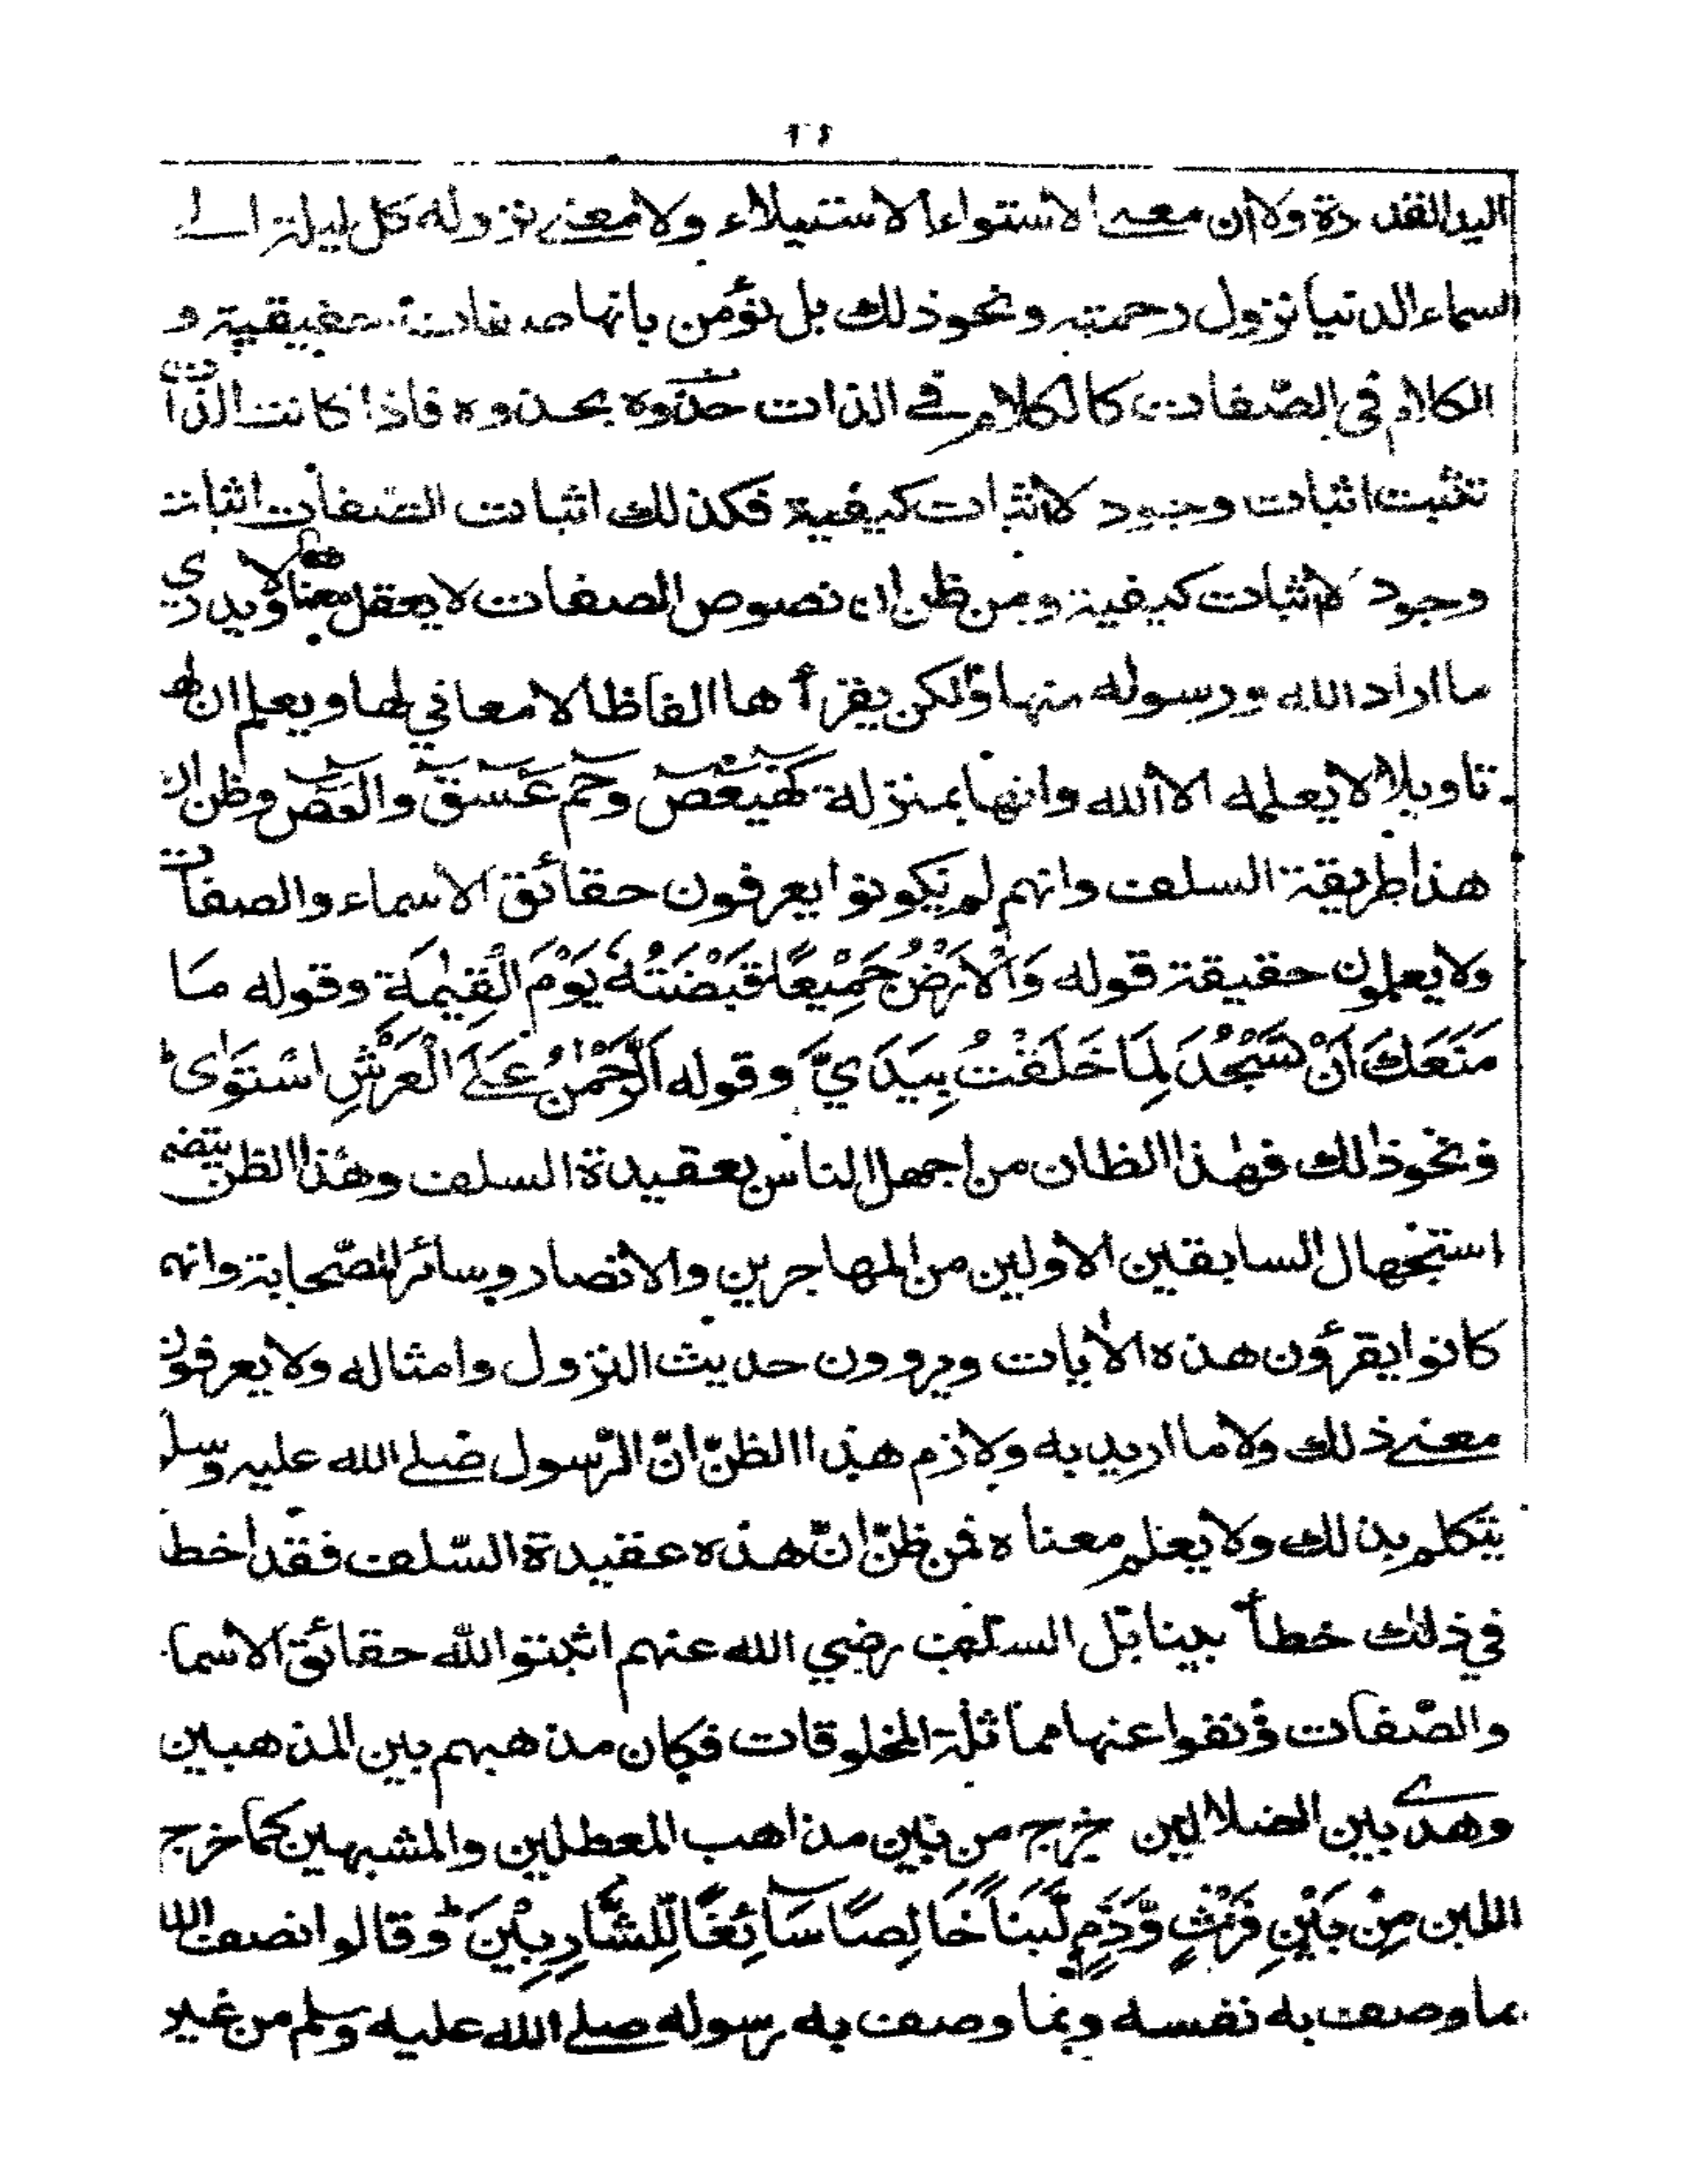 اليد القدرة ولا ان معنى الاستواء الاستيلاء ولا معنے نزوله كل ليلة الے
السماء الدنيا نزول رحمته ونحو ذلك بل نؤمن بانها صفات حقيقية و
الكلام في الصّفات كالكلام فے الذات حذوه بحذوه فاذا كانت الذات
تثبت اثبات وجود لا اثبات كيفية فكذلك اثبات الصّفات اثبات
وجود لا اثبات كيفية ومن ظن ان نصوص الصفات لا يعقل معناها ولا يدري
ما اراد الله ورسوله منها ولكن يقرأ ها الفاظا لا معاني لها ويعلم ان لها
تاويلا لا يعلمه الا الله وانها بمنزلة كٓهٰيٰعٓصٓ وحٰمٓ عٓسٓقٓ والٓمٓصٓ وظن ان
هذا طريقة السلف وانهم لم يكونوا يعرفون حقائق الاسماء والصفات
ولا يعلمون حقيقة قوله وَالْاَرْضُ جَمِيْعًا قَبْضَتُهٗ يَوْمَ الْقِيٰمَةِ وقوله مَا
مَنَعَكَ اَنْ تَسْجُدَ لِمَا خَلَقْتُ بِيَدَيَّ وقوله اَلرَّحْمٰنُ عَلَے الْعَرْشِ اسْتَوٰى ط
ونحو ذلك فهذا الظان من اجهل الناس بعقيدة السلف وهذا الظن يتضمن
استجهال السابقين الاولين من المهاجرين والانصار وسائر الصّحابة وانهم
كانوا يقرؤن هذه الأيات ويروون حديث النزول وامثاله ولا يعرفون
معنے ذلك ولا ما اريد به ولازم هذا الظنّ انّ الرّسول صلے الله عليه وسلم
يتكلم بذلك ولا يعلم معناه فمن ظنّ انّ هذه عقيدة السّلف فقد اخطأ
في ذلك خطأ بينا بل السلف رضي الله عنهم اثبتوا لله حقائق الاسماء
والصّفات ونفوا عنها مماثلة المخلوقات فكان مذهبهم بين المذهبين
وهدے بين الضلالين خرج من بين مذاهب المعطلين والمشبهين كما خرج
اللبن مِنْ بَيْنِ فَرْثٍ وَّدَمٍ لَّبَنًا خَالِصًا سَآئِغًا لِّلشَّارِبِيْنَ ط وقالوا نصف الله
بما وصف به نفسه وبما وصف به رسوله صلے الله عليه وسلم من غير